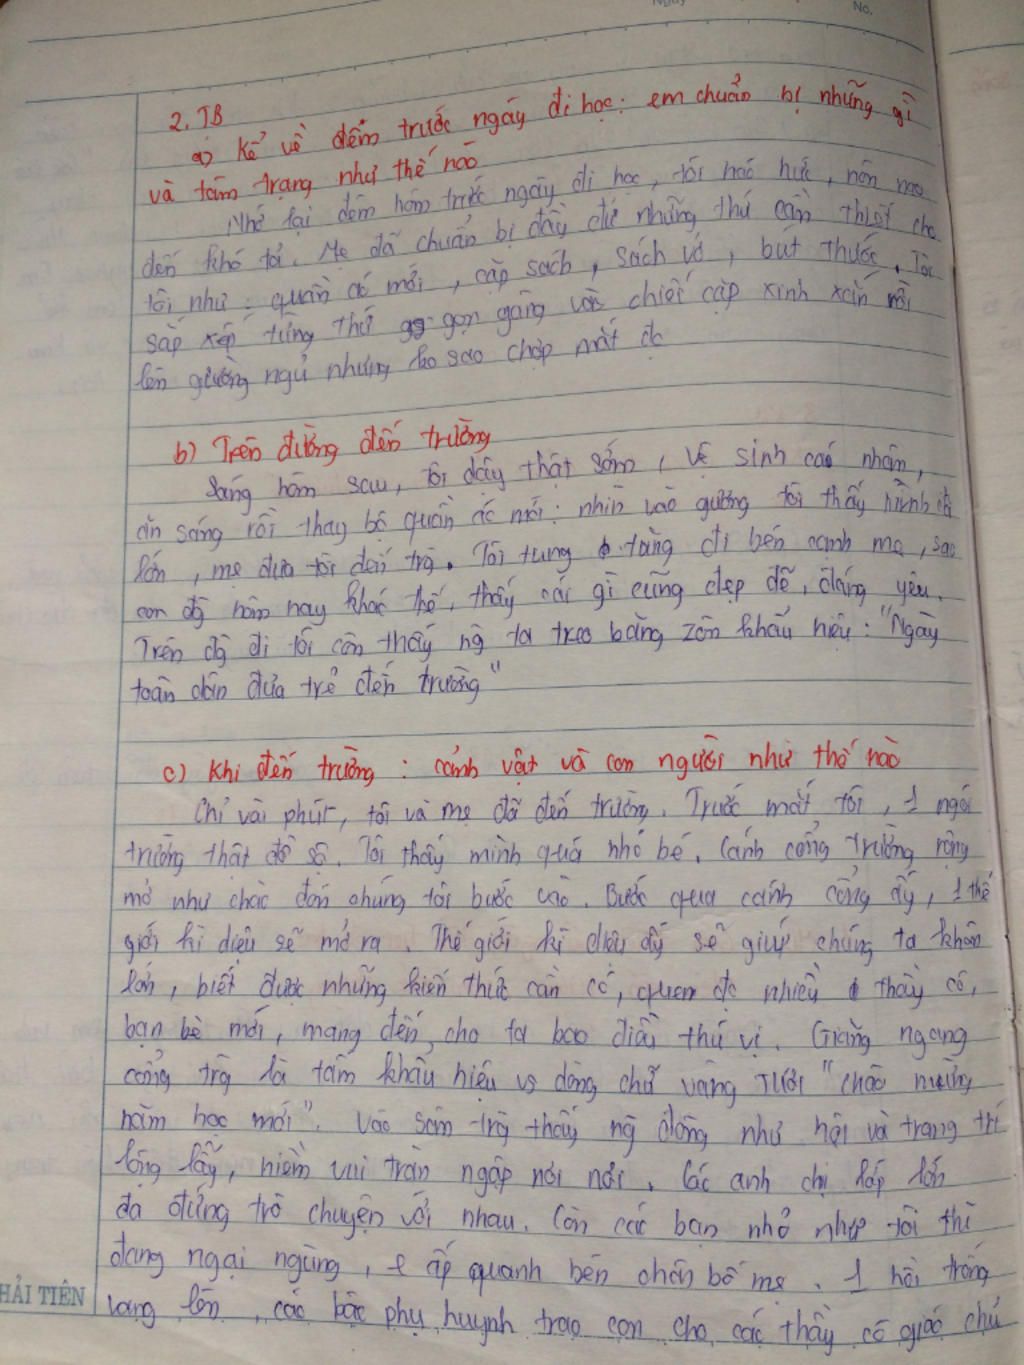 No.
2. TB
a) Kể về đêm trước ngày đi học: em chuẩn bị những gì
và tâm trạng như thế nào
Nhớ lại đêm hôm trước ngày đi học, tôi háo hức, nôn nao
đến khó tả. Mẹ đã chuẩn bị đầy đủ những thứ cần thiết cho
tôi như: quần áo mới, cặp sách, sách vở, bút thước. Tôi
sắp xếp từng thứ gọn gàng vào chiếc cặp xinh xắn rồi
lên giường ngủ nhưng ko sao chợp mắt đc
b) Trên đường đến trường
Sáng hôm sau, tôi dậy thật sớm, vệ sinh cá nhân,
ăn sáng rồi thay bộ quần áo mới: nhìn vào gương tôi thấy mình đã
lớn, mẹ đưa tôi đến trg. Tôi tung tăng đi bên cạnh mẹ, sao
con đg hôm nay khác thế, thấy cái gì cũng đẹp đẽ, đáng yêu.
Trên đg đi tôi còn thấy ng ta treo băng zôn khẩu hiệu: "Ngày
toàn dân đưa trẻ đến trường"
c) Khi đến trường: cảnh vật và con người như thế nào
Chỉ vài phút, tôi và mẹ đã đến trường. Trước mắt tôi, 1 ngôi
trường thật đồ sộ. Tôi thấy mình quá nhỏ bé. Cánh cổng trường rộng
mở như chào đón chúng tôi bước vào. Bước qua cánh cổng ấy, 1 thế
giới kì diệu sẽ mở ra. Thế giới kì diệu ấy sẽ giúp chúng ta khôn
lớn, biết được những kiến thức cần có, quen đc nhiều thầy cô,
bạn bè mới, mang đến cho ta bao điều thú vị. Giăng ngang
cổng trg là tấm khẩu hiệu vs dòng chữ vàng tươi "chào mừng
năm học mới". Vào sân trg thấy ng đông như hội và trang trí
lộng lẫy, niềm vui tràn ngập nơi nơi. Các anh chị lớp lớn
đã đứng trò chuyện với nhau. Còn các bạn nhỏ như tôi thì
đang ngại ngùng, e ấp quanh bên chân bố mẹ. 1 hồi trống
vang lên, các bậc phụ huynh trao con cho các thầy cô giáo chủ
HẢI TIẾN